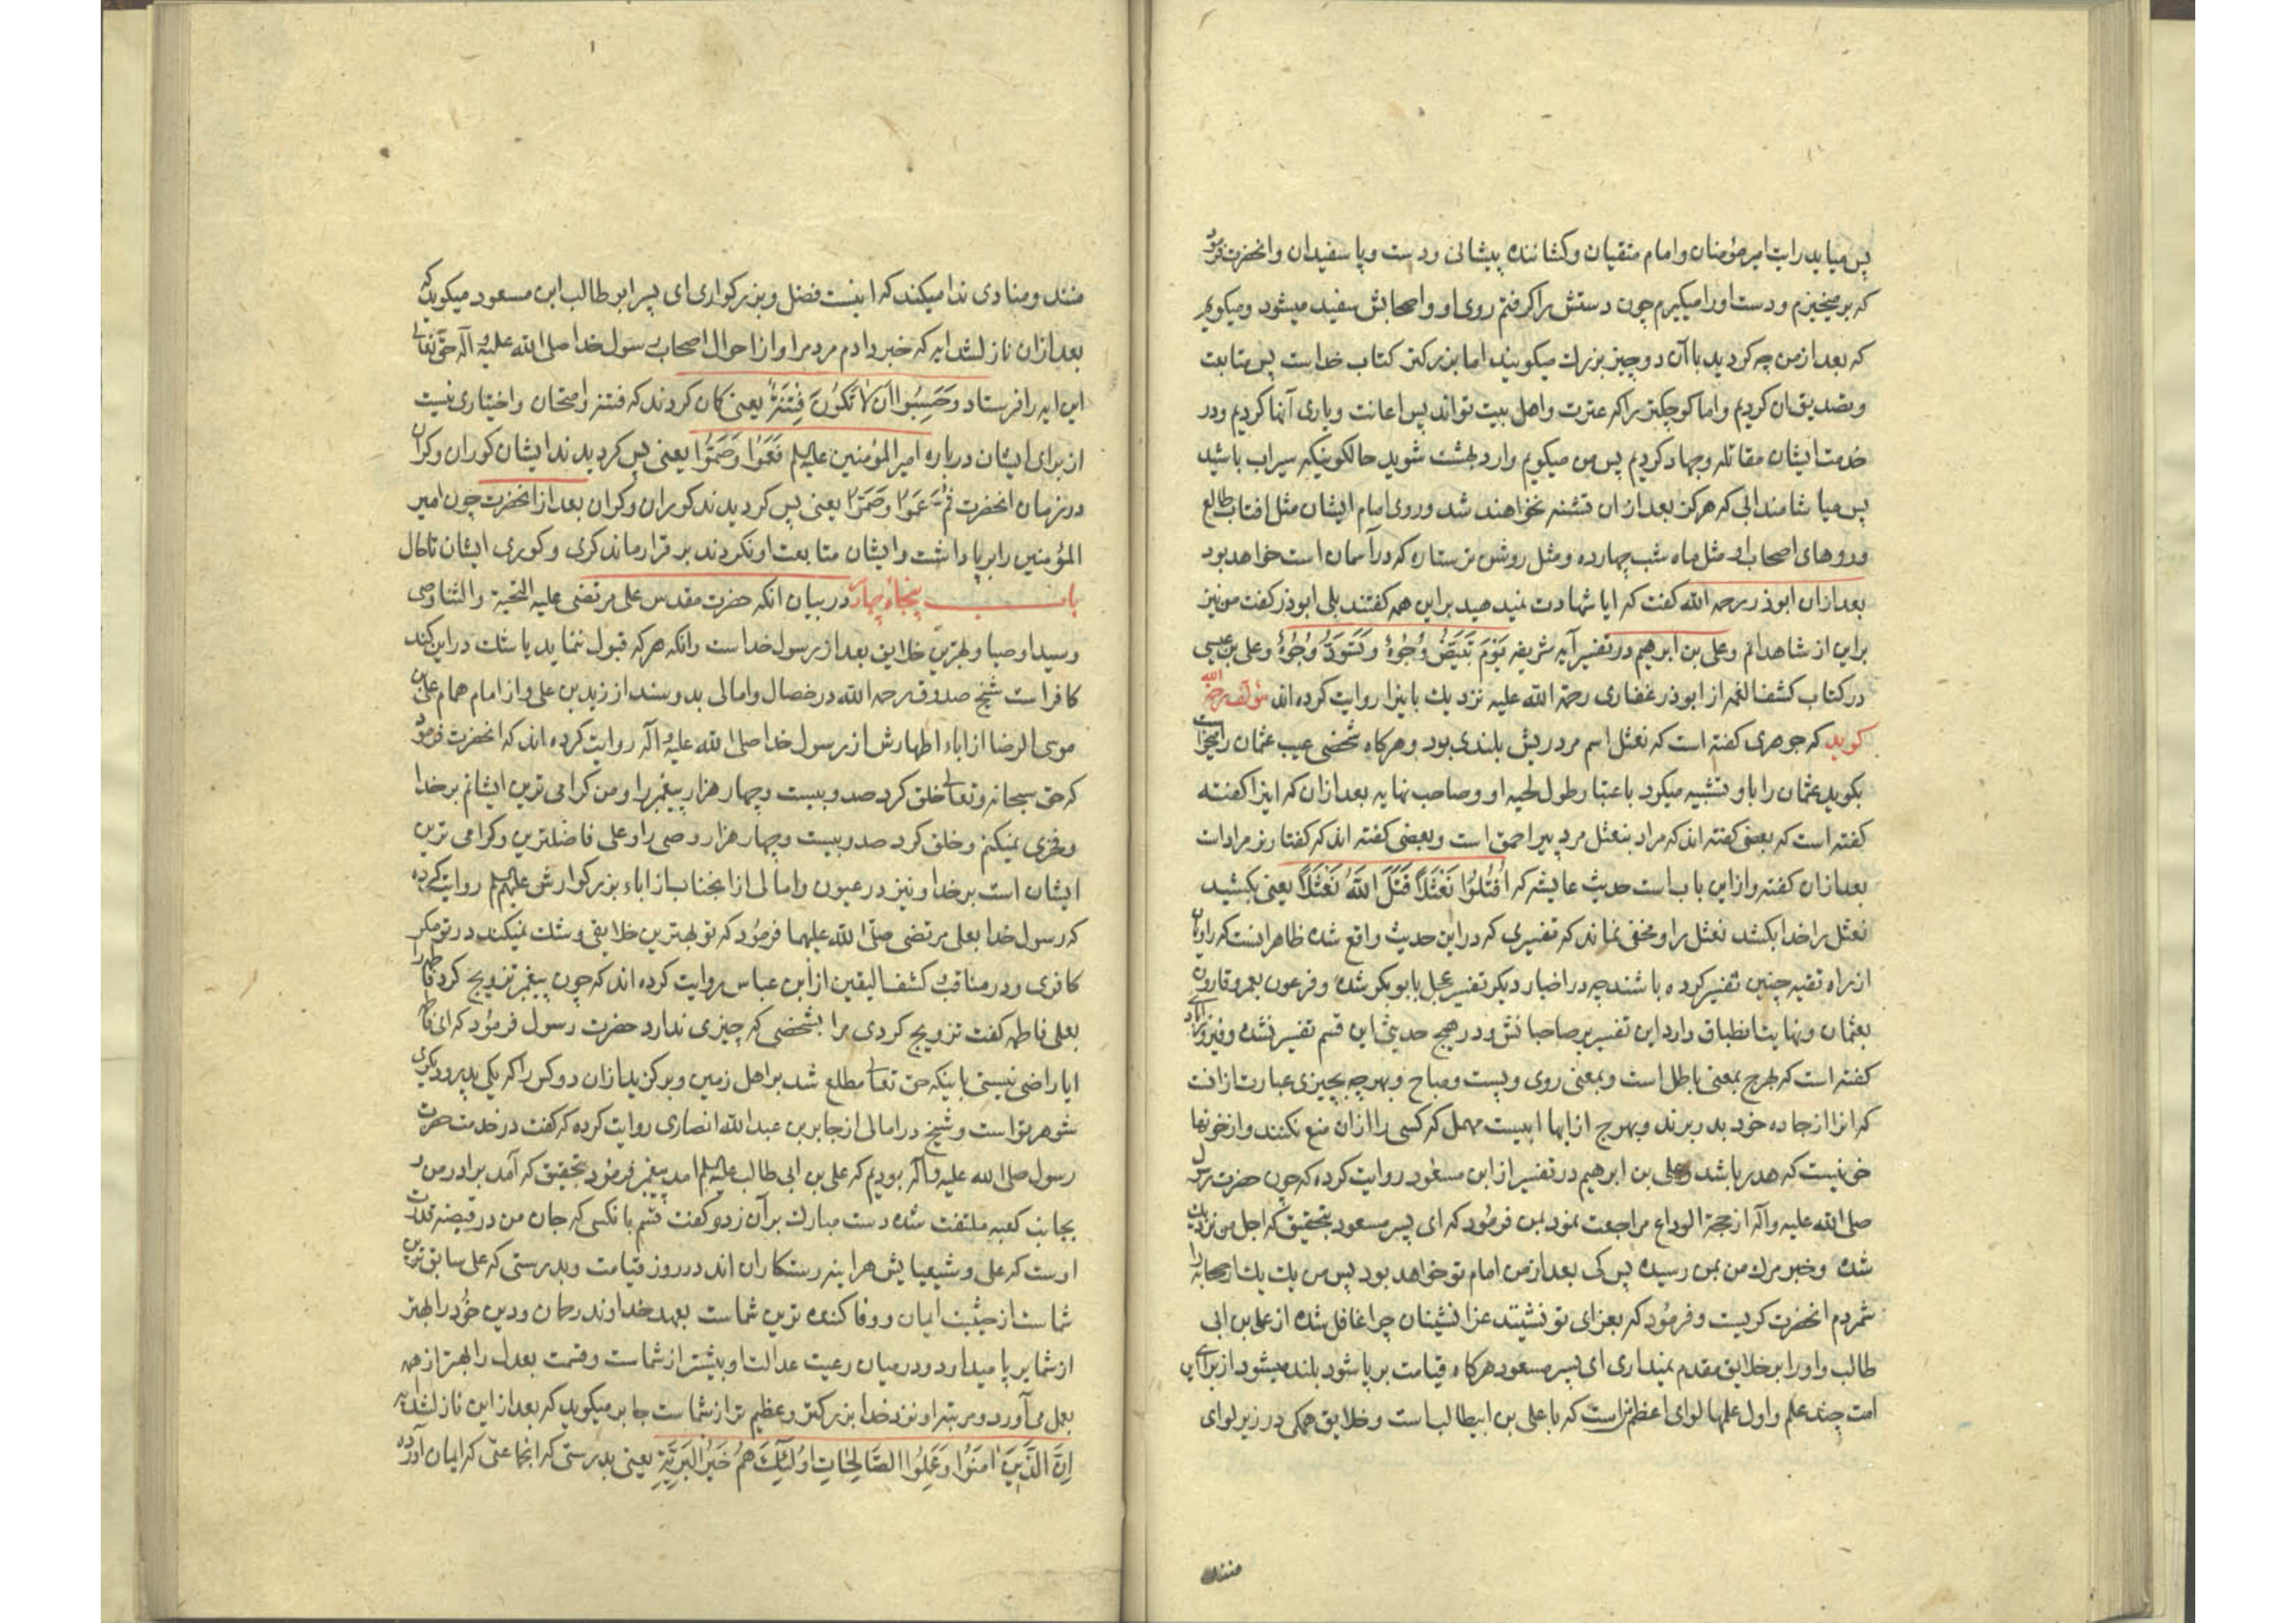 پس میاید رایت امیر مؤمنان و امام متقیان و کشاننده پیشانی و دست و پا سفیدان و انحضرت فرمود
که برمیخیزم و دست او را میکیرم چون دستش را کرفتم روی او و اصحابش سفید میشود و میکویم
که بعد از من چه کردید با آن دو چیز بزرك میکویند اما بزرکتر کتاب خداست پس متابعت
و تصدیق ان کردیم و اما کوچکتر را که عترت و اهل بیت تواند پس اعانت و یاری آنها کردیم و در
خدمت ایشان مقاتله و جهاد کردیم پس من میکویم وارد بهشت شوید حالکونیکه سیراب باشید
پس میاشامند ابی که هرکز بعد از ان تشنه نخواهند شد و روی امام ایشان مثل افتاب طالع
و روهای اصحاب او مثل ماه شب چهارده و مثل روشن تر ستاره که در آسمان است خواهد بود
بعد از ان ابوذر رحمه الله کفت که ایا شهادت نمیدهید بر این همه کفتند بلی ابوذر کفت من نیز
بر این از شاهدانم و علی بن ابرهیم در تفسیر آیه شریفه یَوْمَ تَبْیَضُّ وُجُوْهٌ وَتَسْوَدُّ وُجُوْهٌ و علی بن عیسی
در کتاب کشف الغمه از ابوذر غفاری رحمة الله علیه نزدیك باینرا روایت کرده اند مؤلف رحمه الله
کوید که جوهری کفته است که نعثل اسم مرد ریش بلندی بود و هرکاه شخصی عیب عثمان را میخواست
بکوید عثمان را باو تشبیه میکرد باعتبار طول لحیه او و صاحب نهایه بعد از ان که اینرا کفته
کفته است که بعضی کفته اند که مراد بنعثل مرد پیر احمق است و بعضی کفته اند که کفتار نر مراد است
بعد از ان کفته و از این باب است حدیث عایشه که اُقْتُلُوْا نَعْثَلاً قَتَلَ اللهُ نَعْثَلاً یعنی بکشید
نعثل را خدا بکشد نعثل را و مخفی نماند که تفسیری که در این حدیث واقع شده ظاهر اینست که راویان
از راه تقیه چنین تفسیر کرده باشند چه در اخبار دیکر تفسیر عجل بابوبکر شده و فرعون بعمر و قارون
بعثمان و نهایت انطباق دارد این تفسیر بر صاحبانش و در هیچ حدیث این قسم تفسیر نشده و فیروزابادی
کفته است که بهرج بمعنی باطل است و بمعنی روی و پست و مباح و بهرجه بچیزی عبارت از انست
که انرا از جاده خود بدر برند و بهرج از ابها ابیست مهمل که کسی را از ان منع نکنند و از خونها
خونیست که هدر باشد و علی بن ابرهیم در تفسیر از ابن مسعود روایت کرده که چون حضرت رسول
صلی الله علیه و آله از حجة الوداع مراجعت نمود بمن فرمود که ای پسر مسعود بتحقیق که اجل من نزدیك
شده و خبر مرك من بمن رسیده پس کی بعد از من امام تو خواهد بود پس من یك یك از صحابه را
شمردم انحضرت کریست و فرمود که بعزای تو نشینند عزا نشینان چرا غافل شده از علی بن ابی
طالب و او را بر خلایق مقدم نمیداری ای پسر مسعود هرکاه قیامت بر پا شود بلند میشود از برای این
امت چند علم و اول علمها لوای اعظم تر است که با علی بن ابیطالب است و خلایق همکی در زیر لوای
منند و منادی ندا میکند که اینست فضل و بزرکواری ای پسر ابو طالب ابن مسعود میکوید که
بعد از ان نازل شد ایه که خبر دادم مردم را و از احوال اصحاب رسول خدا صلی الله علیه و آله حق تعالی
این ایه را فرستاد وَحَسِبُوا اَنْ لاٰ تَکُوْنَ فِتْنَةٌ یعنی کمان کردند که فتنه و امتحان و اختیاری نیست
از برای ایشان درباره امیر المؤمنین علیه السلم فَعَمُوْا وَصَمُّوْا یعنی پس کردیدند ایشان کوران و کران
در زمان انحضرت ثُمَّ عَمُوْا وَصَمُّوْا یعنی پس کردیدند کوران و کران بعد از انحضرت چون امیر
المؤمنین را بر پا داشت و ایشان متابعت او نکردند بر قرار ماند کری و کوری ایشان تا حال
باب پنجاه و چهار در بیان انکه حضرت مقدس علی مرتضی علیه التحیة و الثنا وصی
و سید اوصیا و بهترین خلایق بعد از رسول خداست و انکه هرکه قبول ننماید یا شك در این کند
کافر است شیخ صدوق رحمه الله در خصال و امالی بدو سند از زید بن علی و از امام همام علی بن
موسی الرضا از اباء اطهارش از رسول خدا صلی الله علیه و آله روایت کرده اند که انحضرت فرمود
که حق سبحانه و تعالی خلق کرد صد و بیست و چهار هزار پیغمبر را و من کرامی ترین ایشانم بر خدا
و فخری نمیکنم و خلق کرد صد و بیست و چهار هزار وصی را و علی فاضلترین و کرامی ترین
ایشان است بر خدا و نیز در عیون و امالی از انجناب از اباء بزرکوارش علیهم السلم روایت کرده
که رسول خدا بعلی مرتضی صلی الله علیهما فرمود که تو بهترین خلایقی و شك نمیکند در تو مکر
کافری و در مناقب کشف الیقین از ابن عباس روایت کرده اند که چون پیغمبر تزویج کرد فاطمه را
بعلی فاطمه کفت تزویج کردی مرا بشخصی که چیزی ندارد حضرت رسول فرمود که ای فاطمه
ایا راضی نیستی باینکه حق تعالی مطلع شد بر اهل زمین و برکزید از ان دو کس را که یکی پدر و دیکری
شوهر تو است و شیخ در امالی از جابر بن عبد الله انصاری روایت کرده که کفت در خدمت حضرت
رسول صلی الله علیه و آله بودیم که علی بن ابی طالب علیه السلم امد پیغمبر فرمود بتحقیق که آمد برادر من و
بجانب کعبه ملتفت شده دست مبارك بر آن زد و کفت قسم بانکسی که جان من در قبضه قدرت
اوست که علی و شیعیانش هراینه رستکاران اند در روز قیامت و بدرستی که علی سابق ترین
شماست از حیثیت ایمان و وفا کننده ترین شماست بعهد خداوند رحمان و دین خود را بهتر
از شما بر پا میدارد و در میان رعیت عدالت او بیشتر از شماست و قسمت بعدل را بهتر از همه
بعمل می آورد و مرتبه او نزد خدا بزرکتر و عظیم تر از شماست جابر میکوید که بعد از این نازل شد ایه
اِنَّ الَّذِیْنَ اٰمَنُوْا وَعَمِلُوا الصَّالِحَاتِ اُولٰٓئِكَ هُمْ خَیْرُ الْبَرِیَّةِ یعنی بدرستی که انجماعتی که ایمان آورده